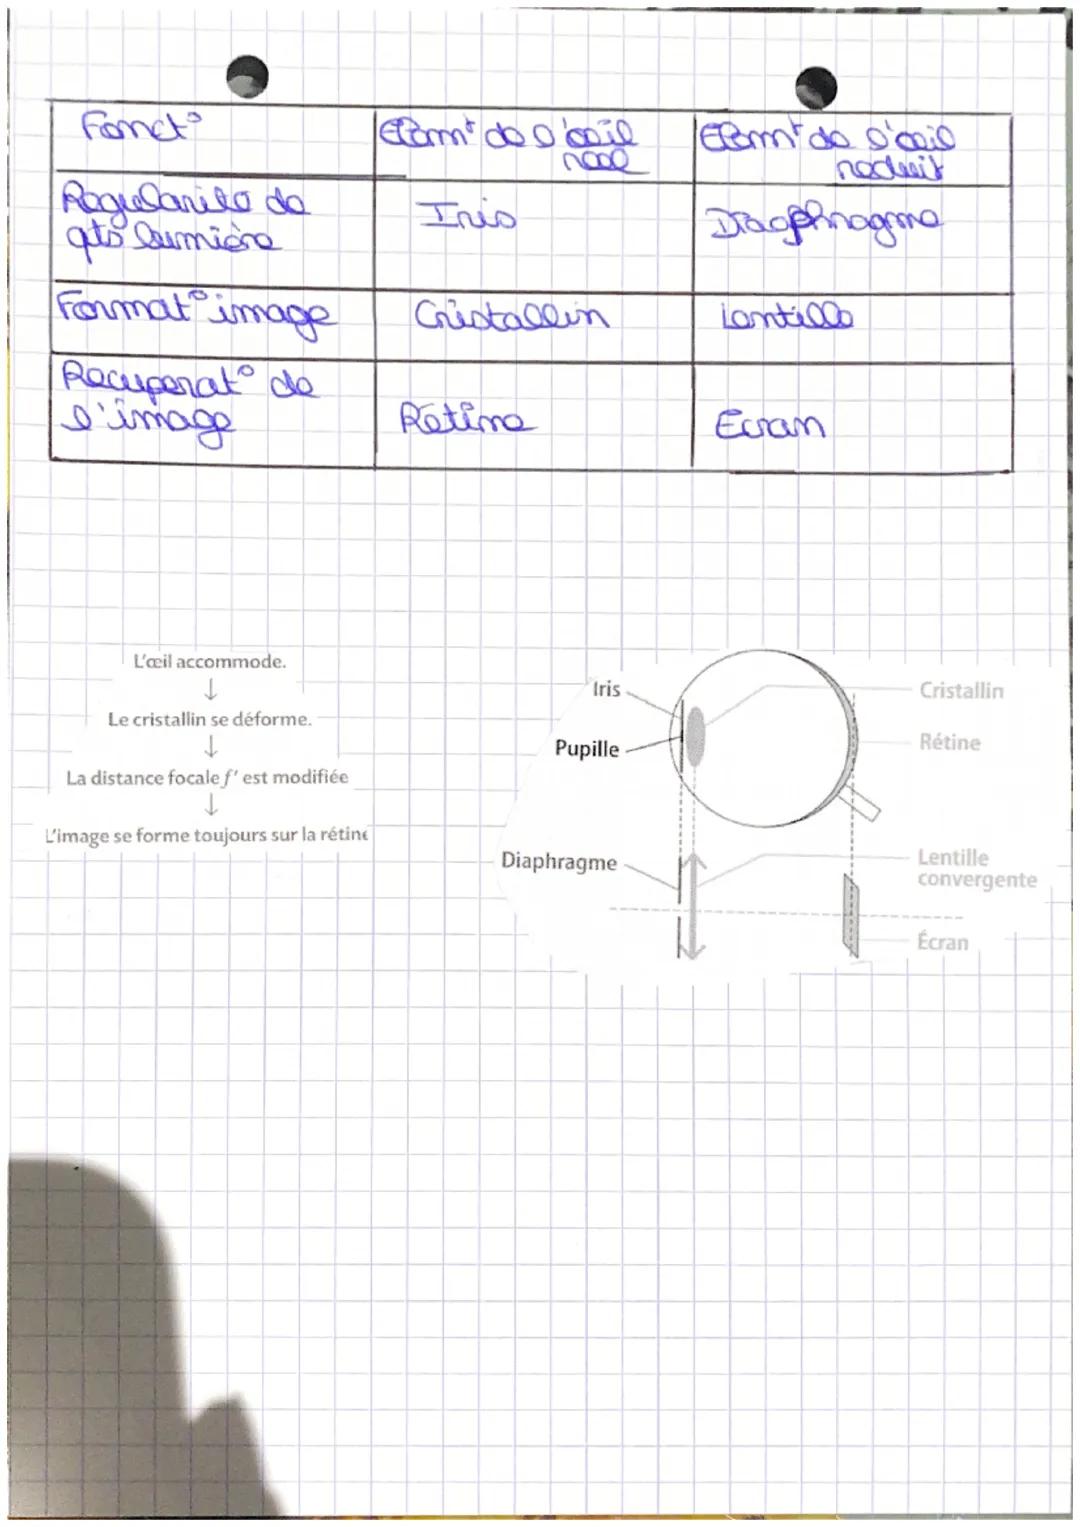 Fonct°
Elemt de l'œil
réel
Elemt de l'œil
reduit
de
qté lumière
Iris
Diaphragme
Format° image
Cristallin
Lentille
Recuperat° de
l'image
Rétine
Ecran
L'œil accommode.
↓
Le cristallin se déforme.
↓
La distance focale f' est modifiée
↓
L'image se forme toujours sur la rétine
Iris
Cristallin
Pupille
Rétine
Diaphragme
Lentille
convergente
Écran